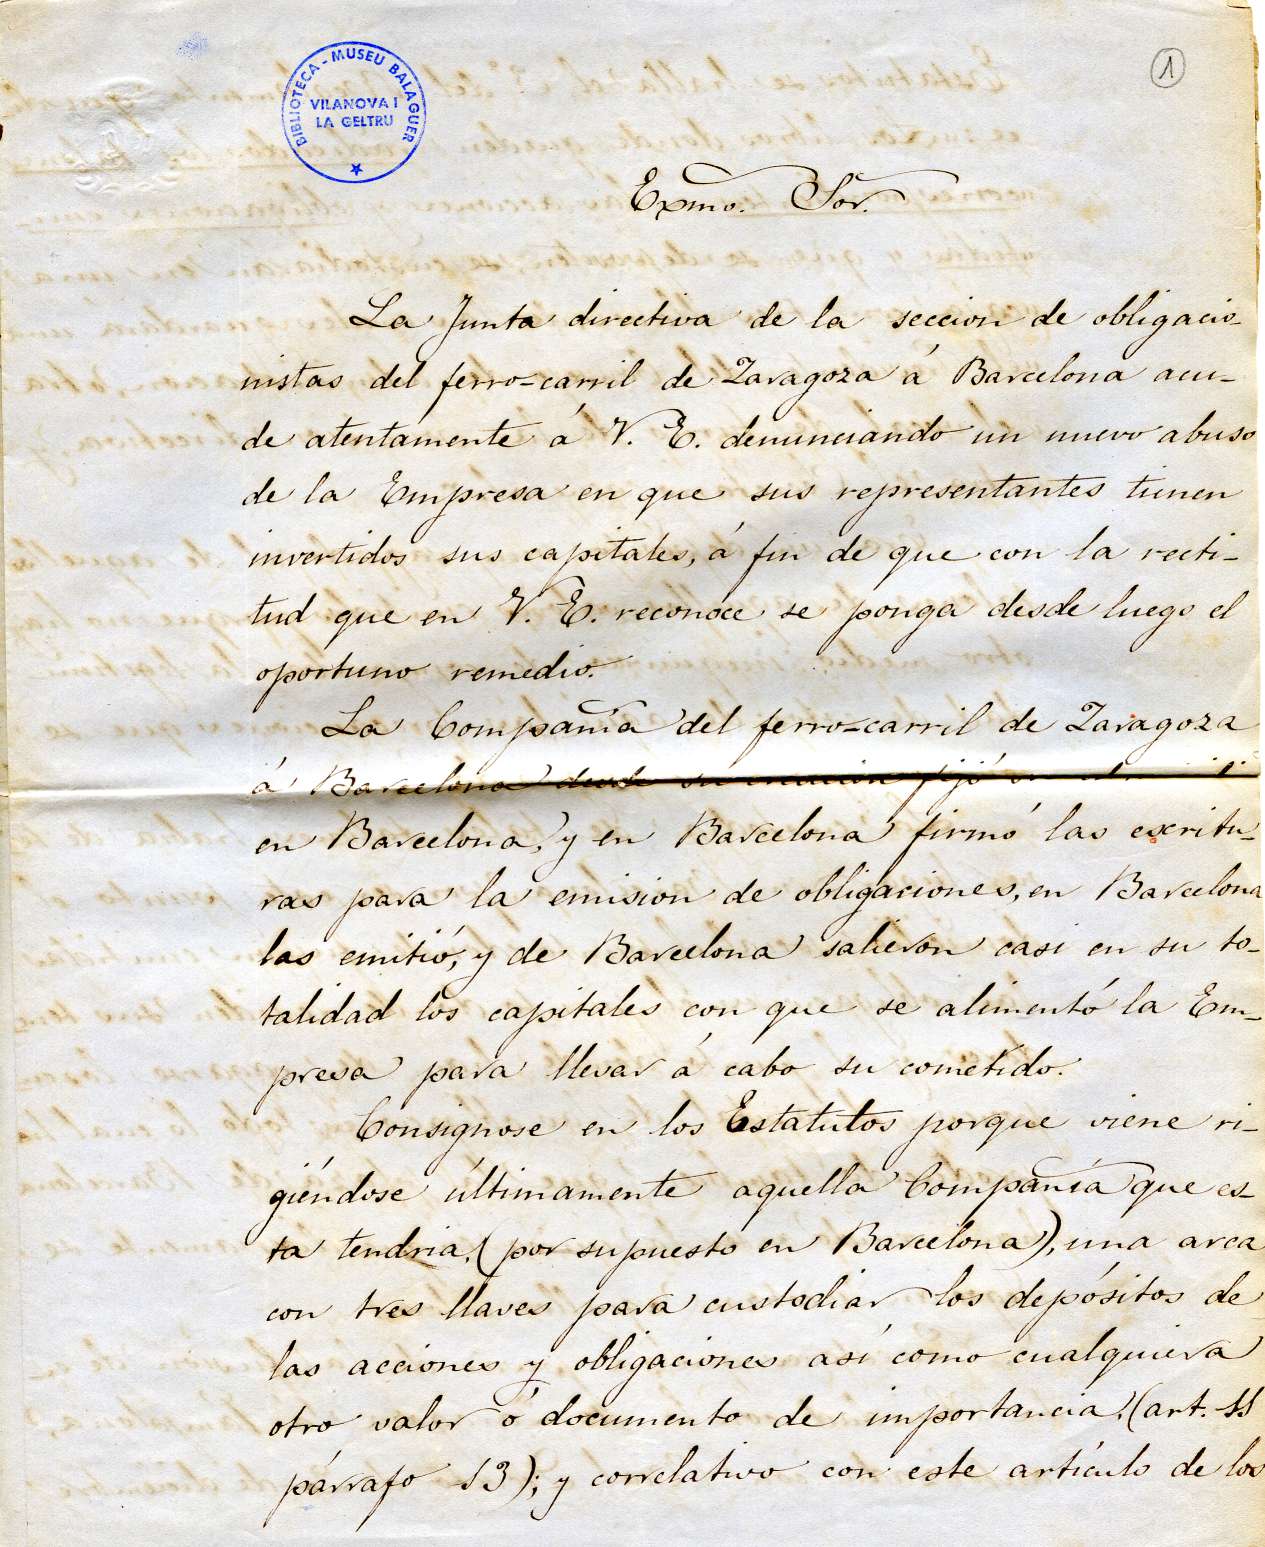 BIBLIOTECA - MUSEU BALAGUER
VILANOVA I
LA GELTRU
1
Exmo. Sor.
La Junta directiva de la seccion de obligacio-
nistas del ferro-carril de Zaragoza á Barcelona acu-
de atentamente á V. E. denunciando un nuevo abuso
de la Empresa en que sus representantes tienen
invertidos sus capitales, á fin de que con la recti-
tud que en V. E. reconoce se ponga desde luego el
oportuno remedio.
La Compañía del ferro-carril de Zaragoza
á Barcelona desde su creacion fijó su
en Barcelona, y en Barcelona firmó las escritu-
ras para la emision de obligaciones, en Barcelona
las emitió, y de Barcelona salieron casi en su to-
talidad los capitales con que se alimentó la Em-
presa para llevar á cabo su cometido.
Consignose en los Estatutos porque viene ri-
giéndose últimamente aquella Compañía que es-
ta tendria, (por supuesto en Barcelona), una arca
con tres llaves para custodiar los depósitos de
las acciones y obligaciones así como cualquiera
otro valor ó documento de importancia, (art. 11
párrafo 13); y correlativo con este artículo de los